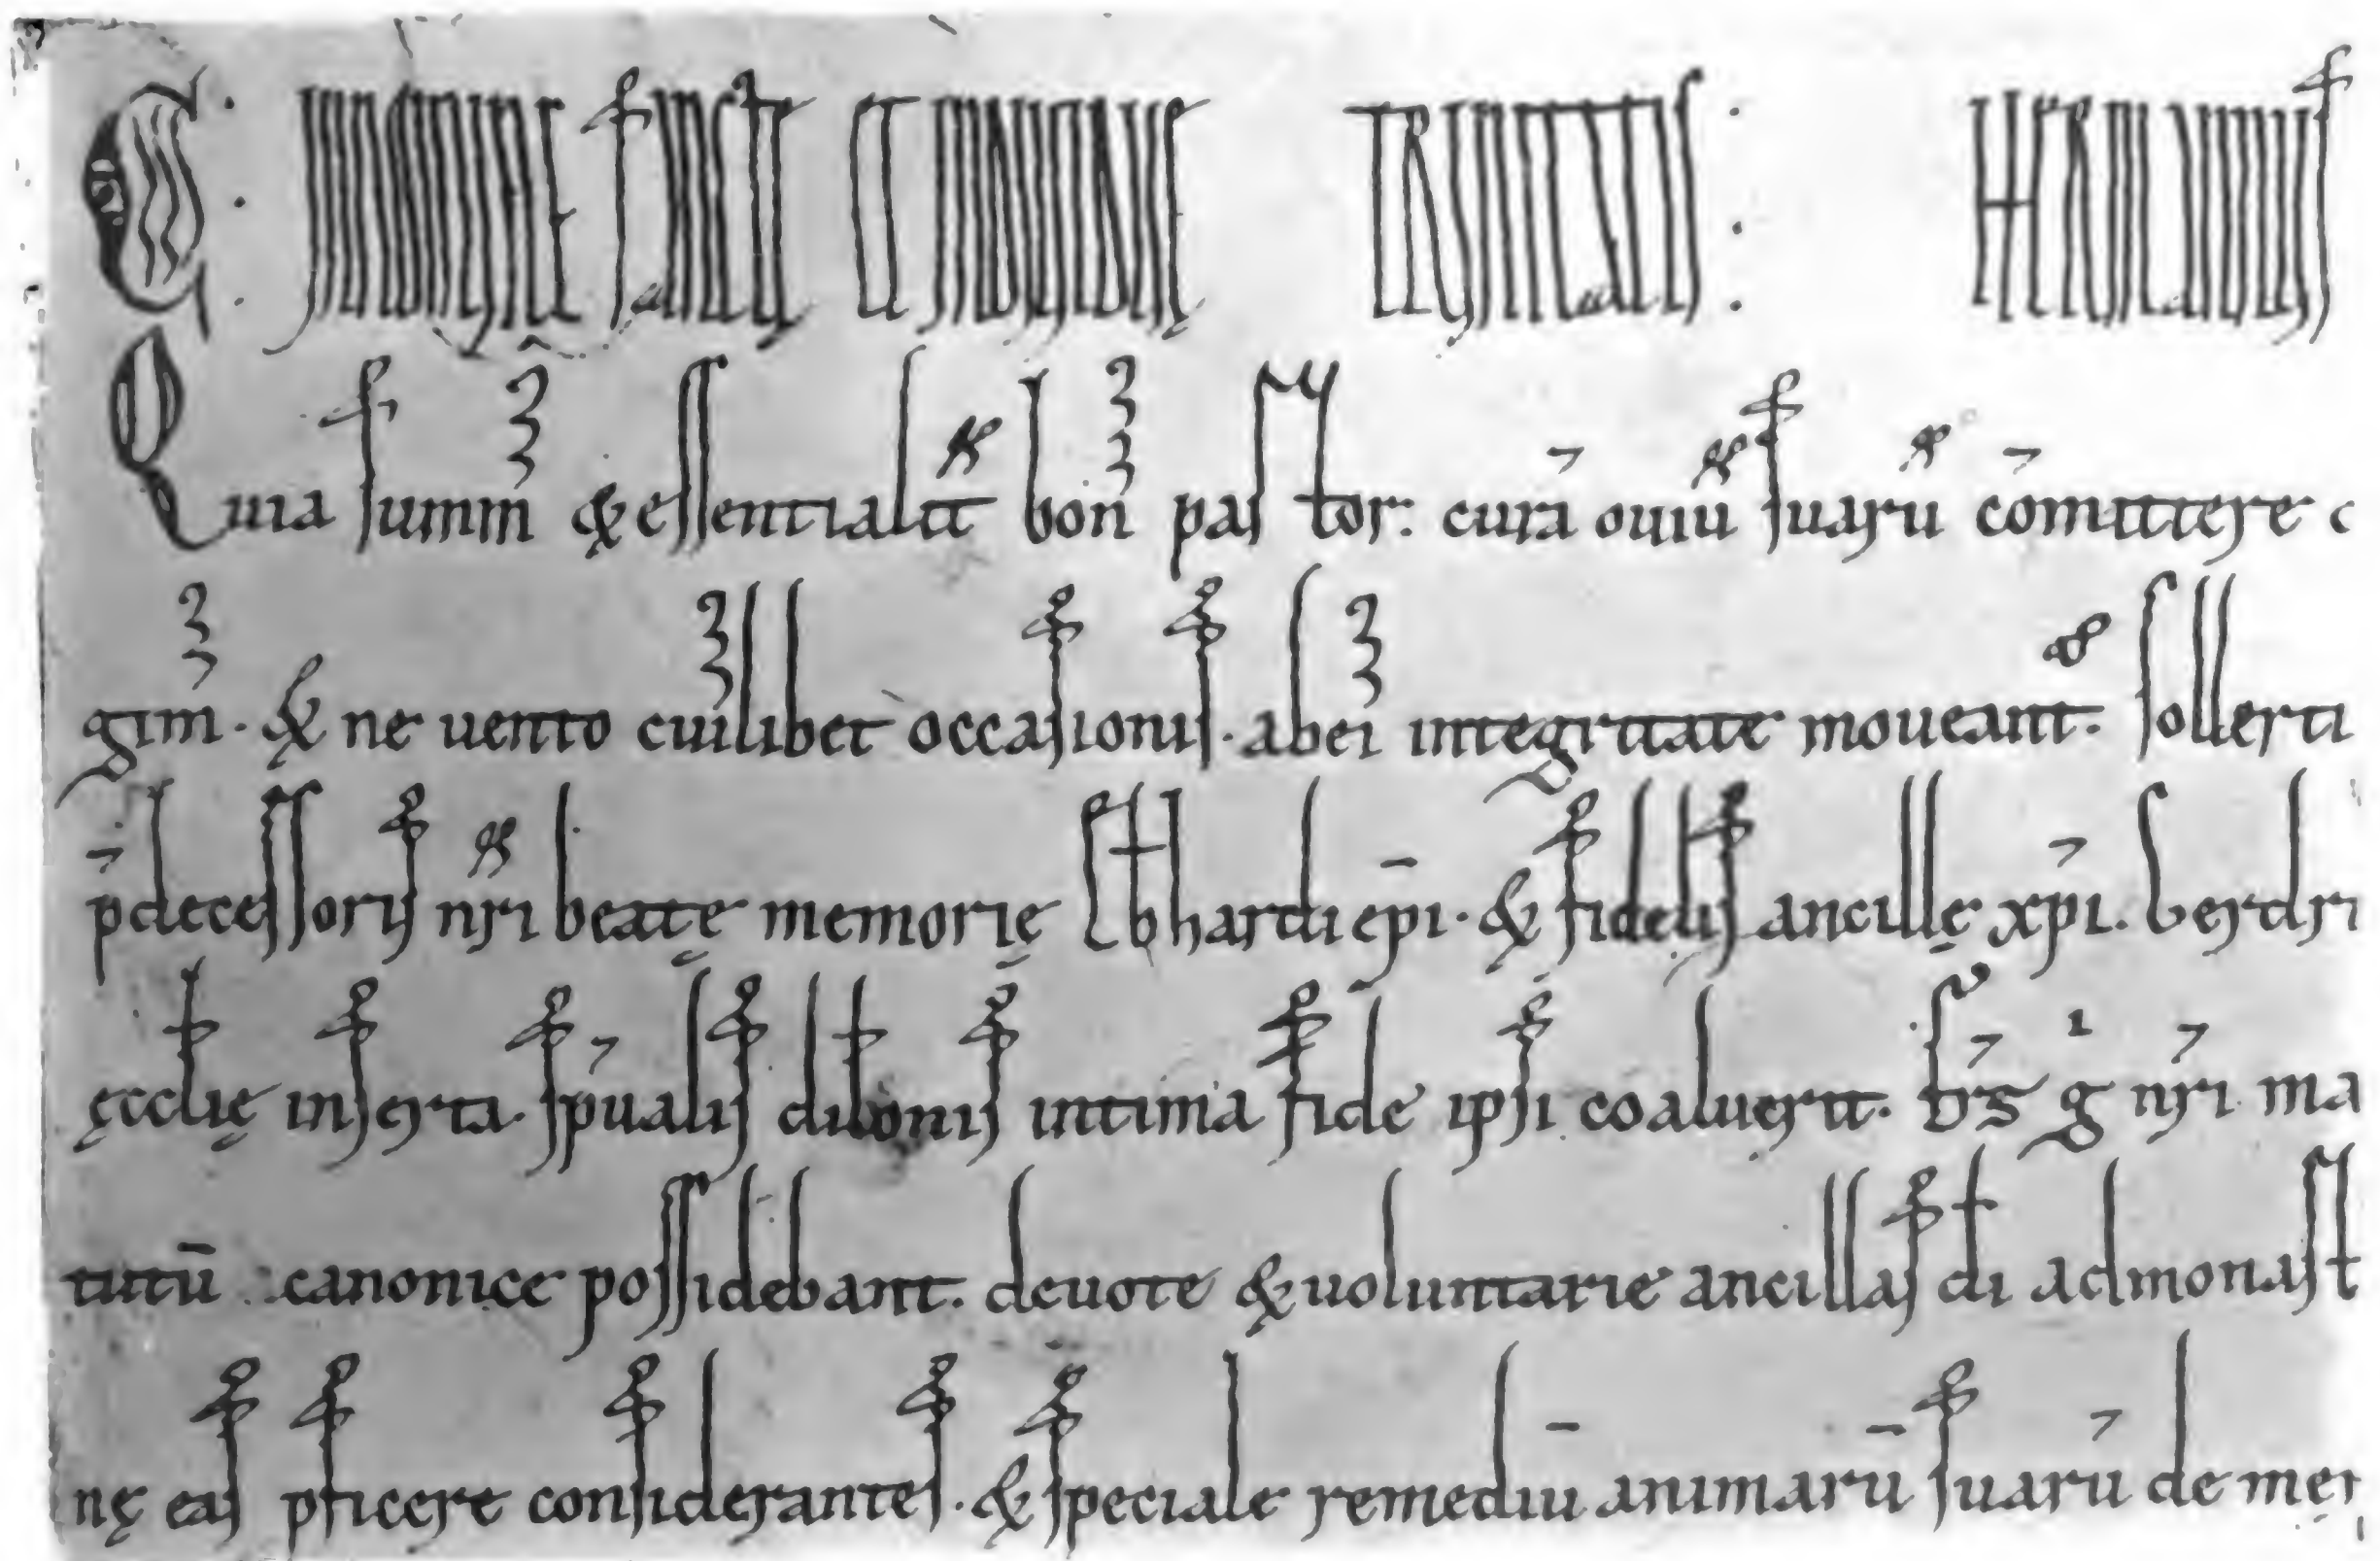 C. IN NOMINE SANCTE ET INDIVIDUE TRINITATIS: HEROLDUS
Quia summ̄ & essentialit̄ bon̄ pastor: curā ouiū suarū cōmittere
gim̄. & ne uento cuilibet occasionis. ab ei integritate moueant̄. sollerti
p̄decessoris nr̄i beatę memorię Ebhardi ep̄i. & fidelis ancillę xp̄i. berdri
ęcclię inserta. sp̄ualis dilt̄onis intima fide ipsi coaluerit. g nr̄i ma
tutū canonice possidebant. deuote & uoluntarie ancillas di ad monast
nę eas pficere considerantes. & speciale remediū animarū suarū de mer